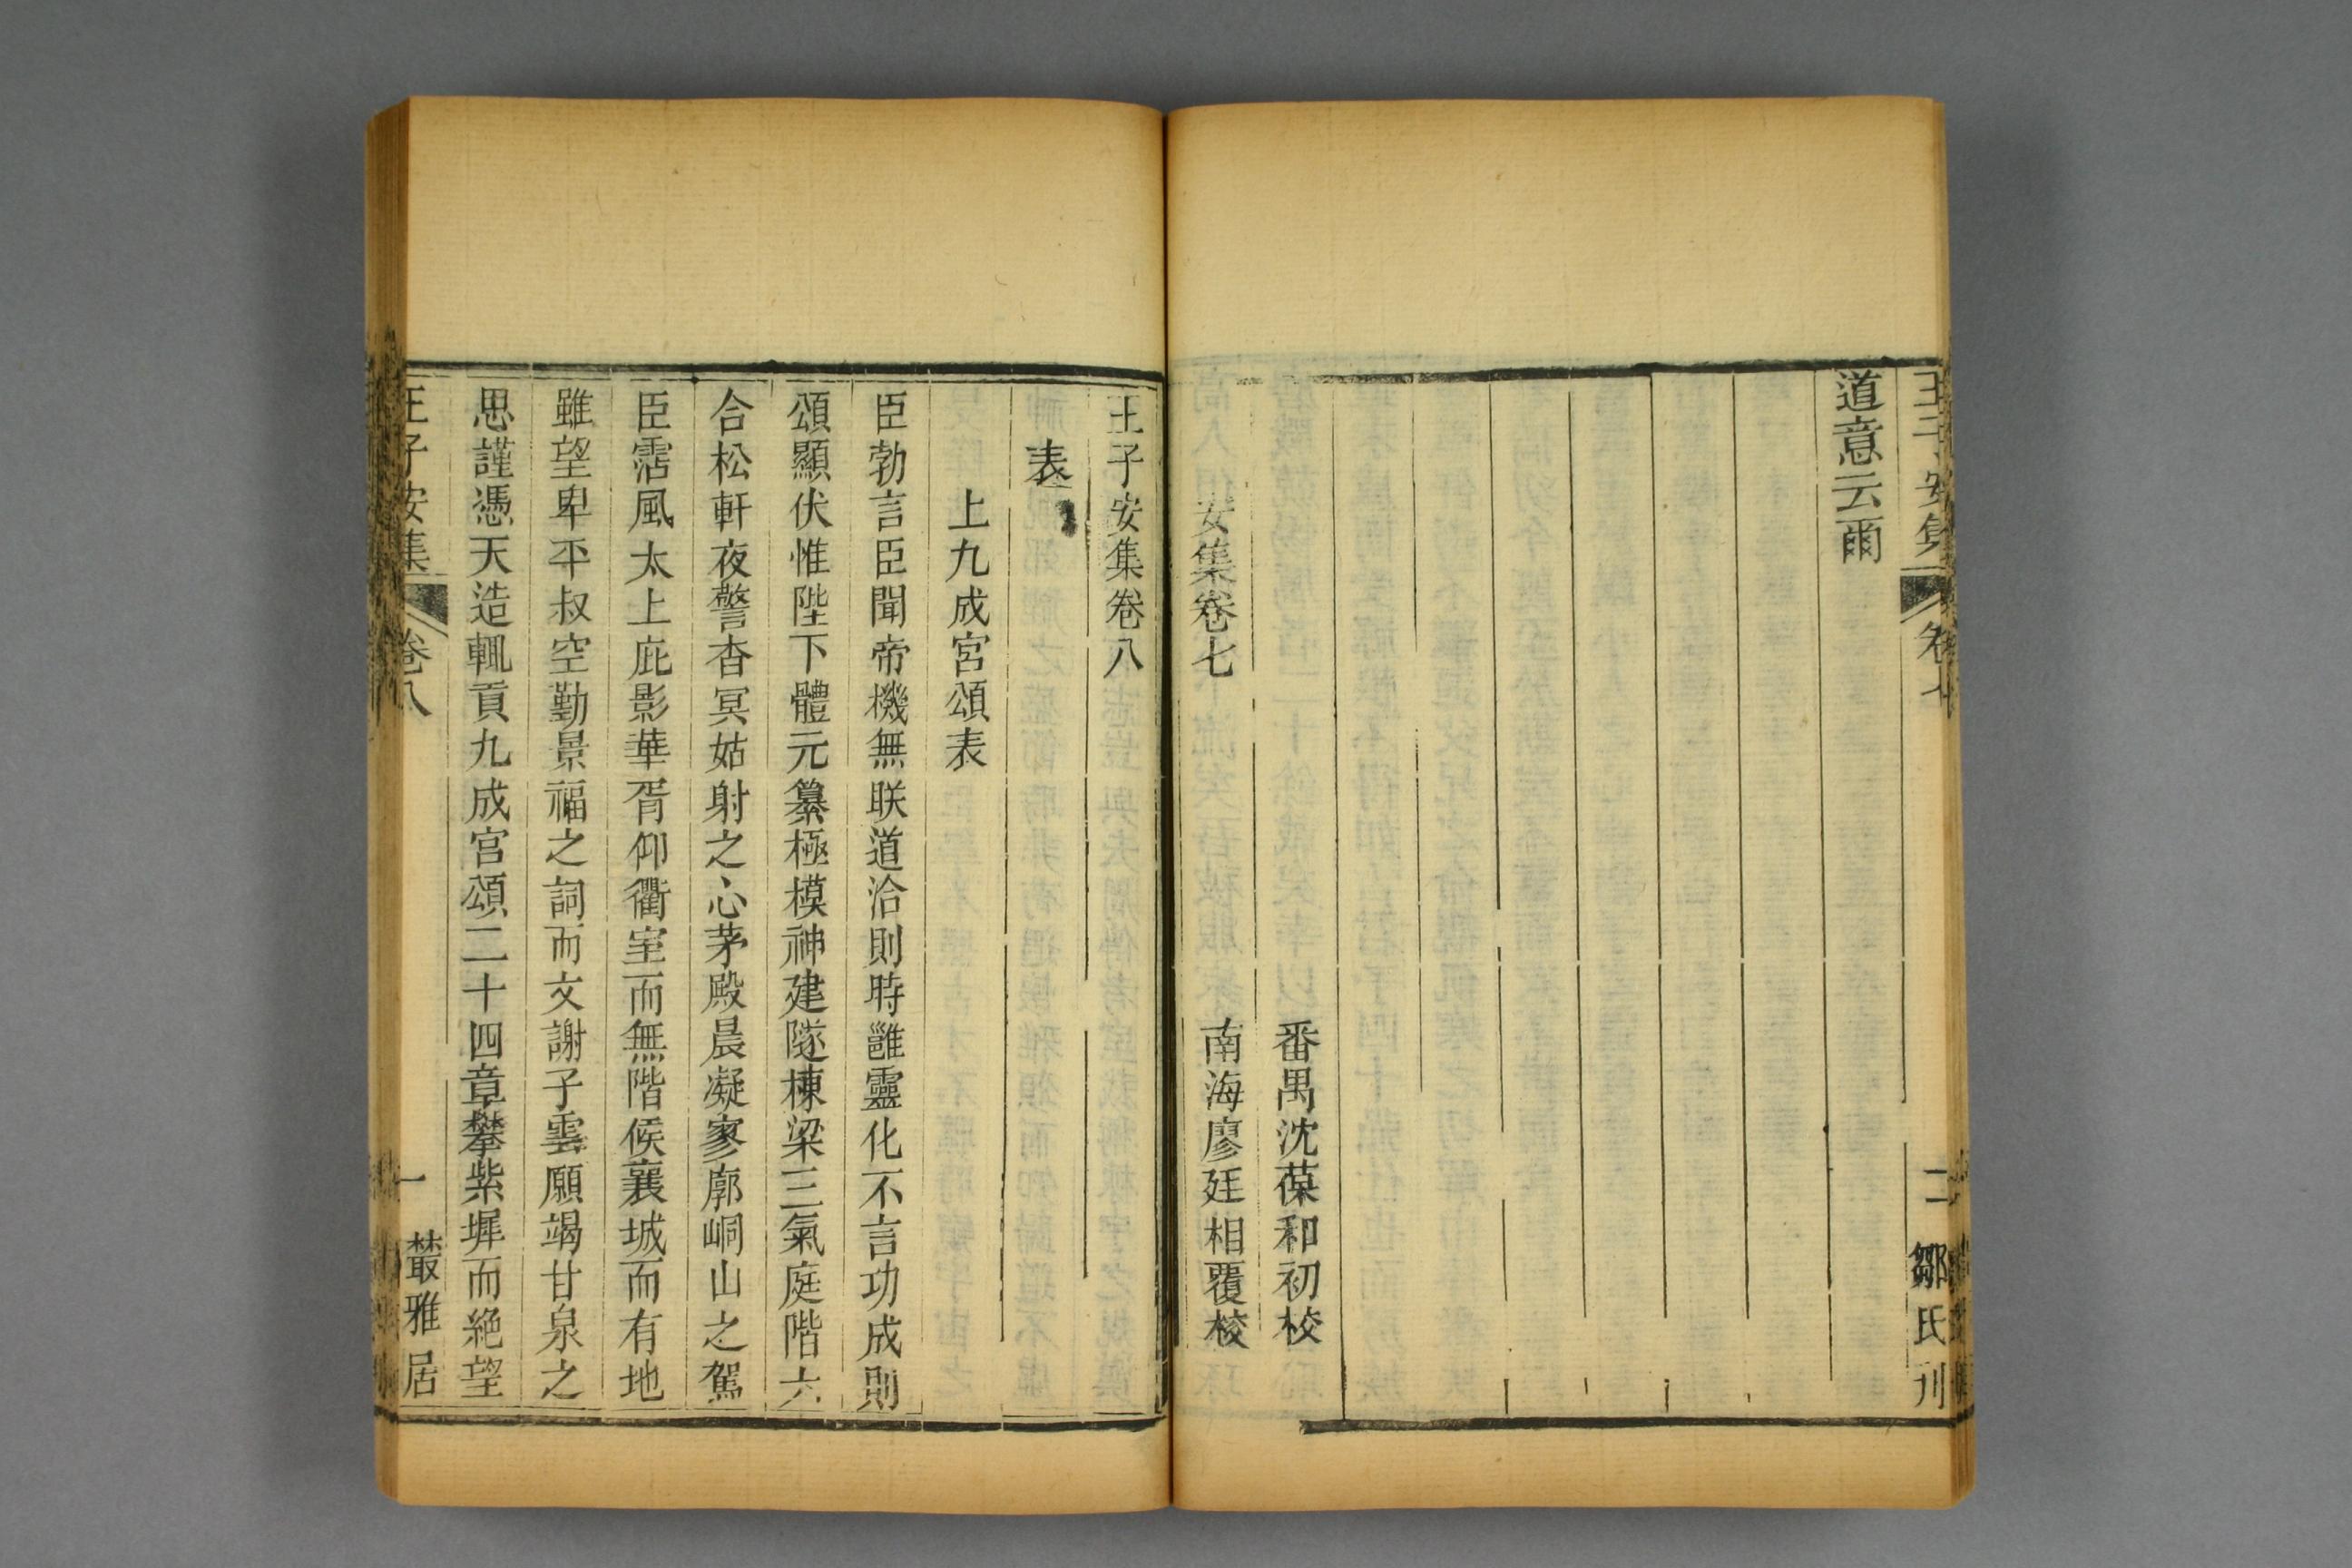 王子安集 卷七 二 鄒氏刊
道意云爾
番禺沈葆和初校
安集卷七 南海廖廷相覆校
王子安集卷八
表
上九成宮頌表
臣勃言臣聞帝機無朕道洽則時雝靈化不言功成則
頌顯伏惟陛下體元纂極模神建隧棟梁三氣庭階六
合松軒夜警杳冥姑射之心茅殿晨凝寥廓峒山之駕
臣霑風太上庇影華胥仰衢室而無階候襄城而有地
雖望卑平叔空勤景福之詞而文謝子雲願竭甘泉之
思謹憑天造輒貢九成宮頌二十四章攀紫墀而絕望
王子安集 卷八 一 叢雅居